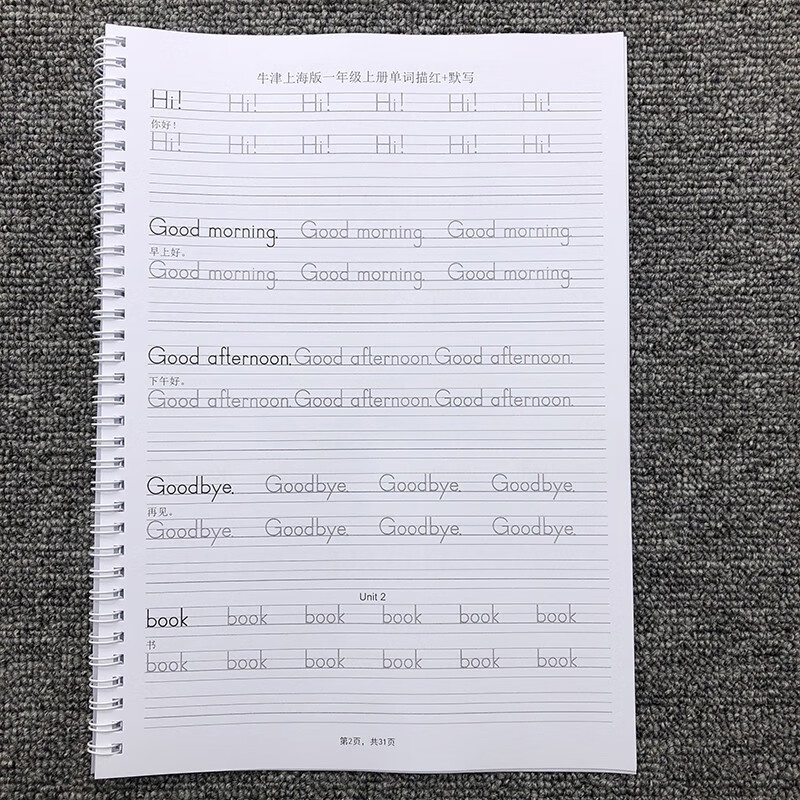 牛津上海版一年级上册单词描红+默写
Hi! Hi! Hi! Hi! Hi! Hi!
你好！
Hi! Hi! Hi! Hi! Hi! Hi!
Good morning. Good morning. Good morning.
早上好。
Good morning. Good morning. Good morning.
Good afternoon. Good afternoon. Good afternoon.
下午好。
Good afternoon. Good afternoon. Good afternoon.
Goodbye. Goodbye. Goodbye. Goodbye.
再见。
Goodbye. Goodbye. Goodbye. Goodbye.
Unit 2
book book book book book book
书
book book book book book book
第2页，共31页